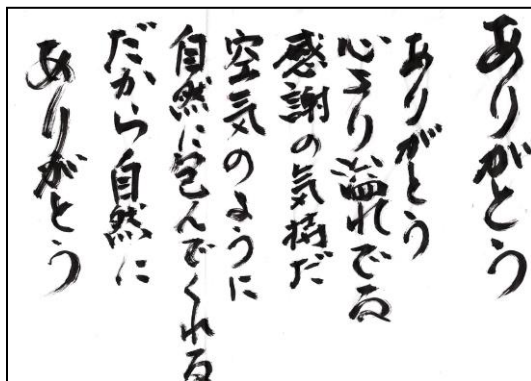 ありがとう
ありがとう
心より溢れでる
感謝の気持だ
空気のように
自然に包んでくれる
だから自然に
ありがとう